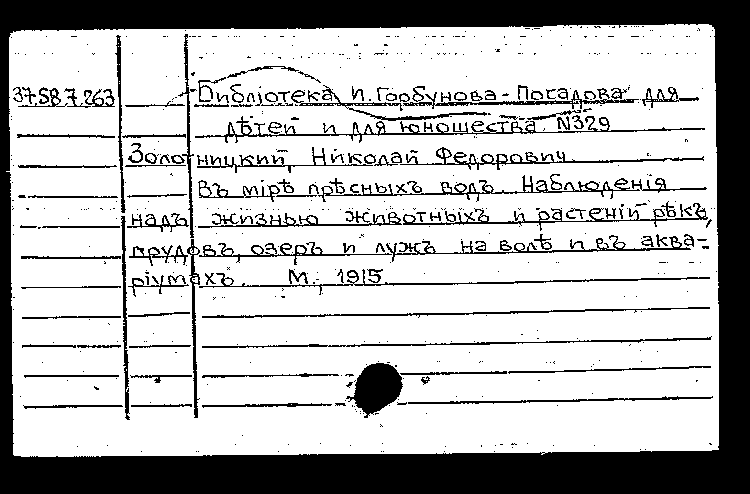 37.58.7.263 Библіотека И. Горбунова-Посадова для
дѣтей и для юношества №329
Золотницкий, Николай Федорович.
Въ мірѣ прѣсныхъ водъ. Наблюденія
надъ жизнью животныхъ и растеній рѣкъ,
прудовъ, озеръ и лужъ на волѣ и въ аква-
ріумахъ. М., 1915.